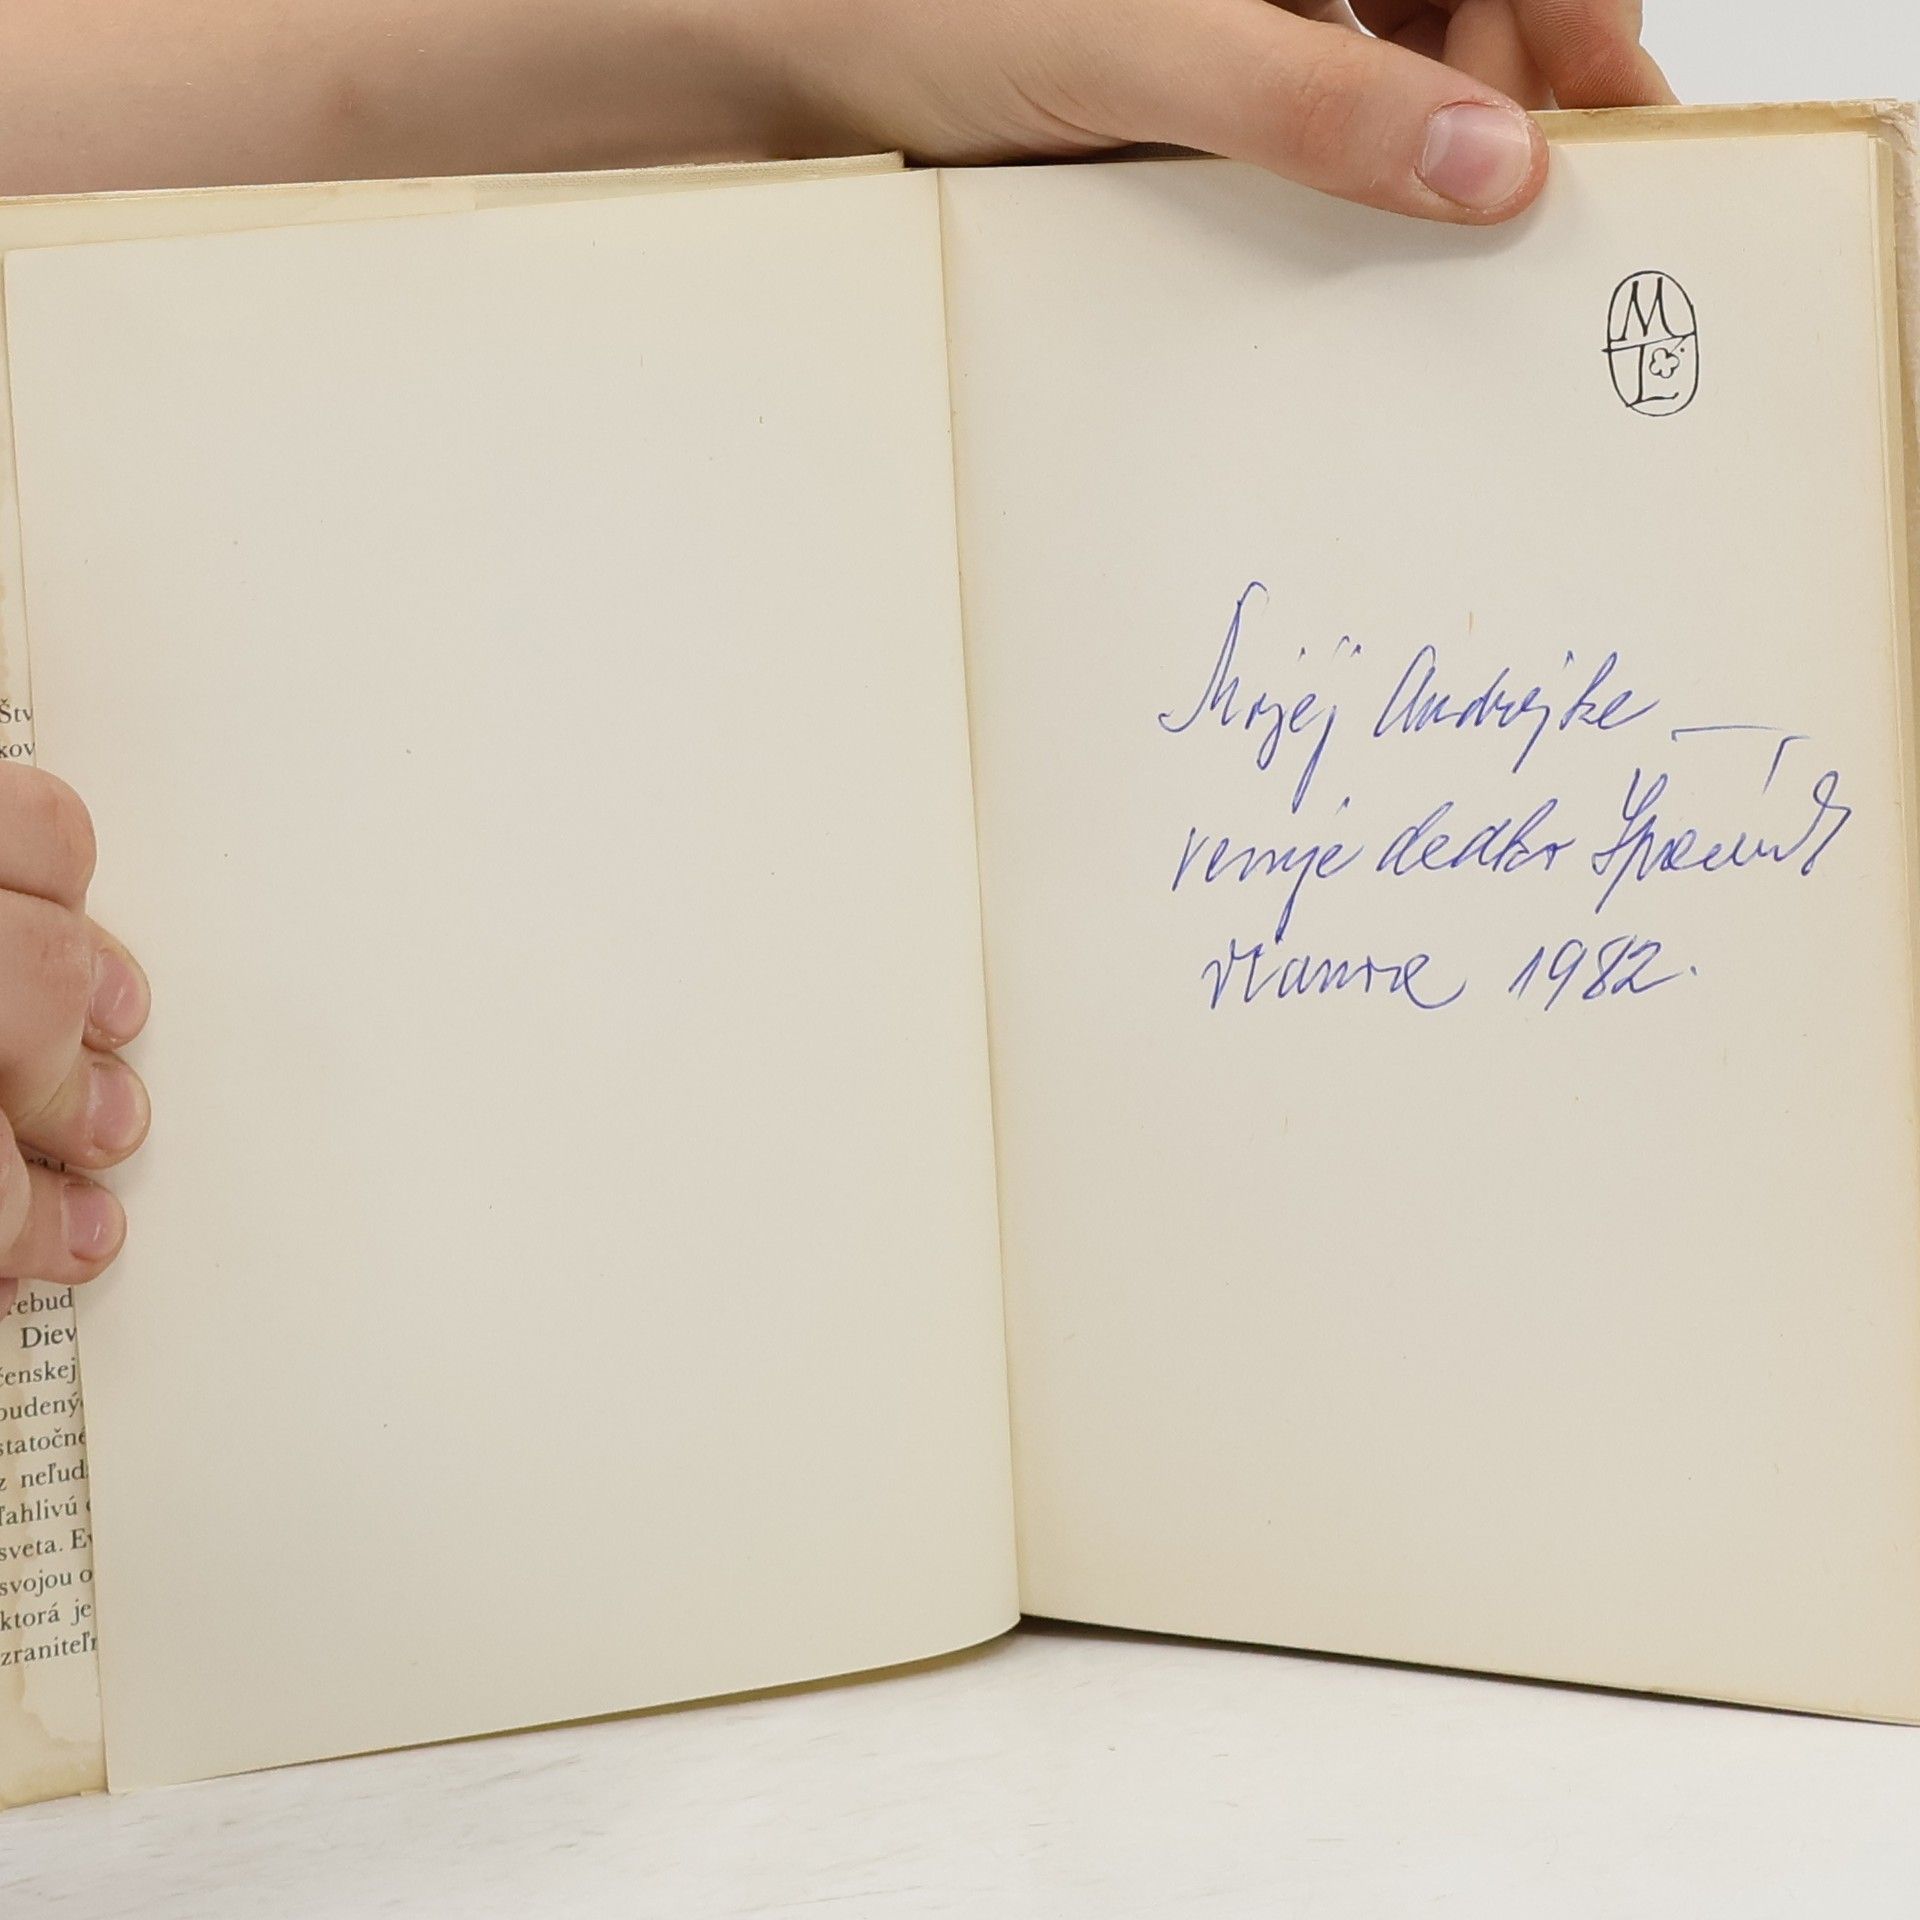 Štv
kov
rebud
Diev
čenskej
budený
statočné
z neľud
ťahlivú
sveta. Ev
svojou o
ktorá je
zraniteľn
M
L
Mojej Andrejke —
venuje dedko
Vianoce 1982.